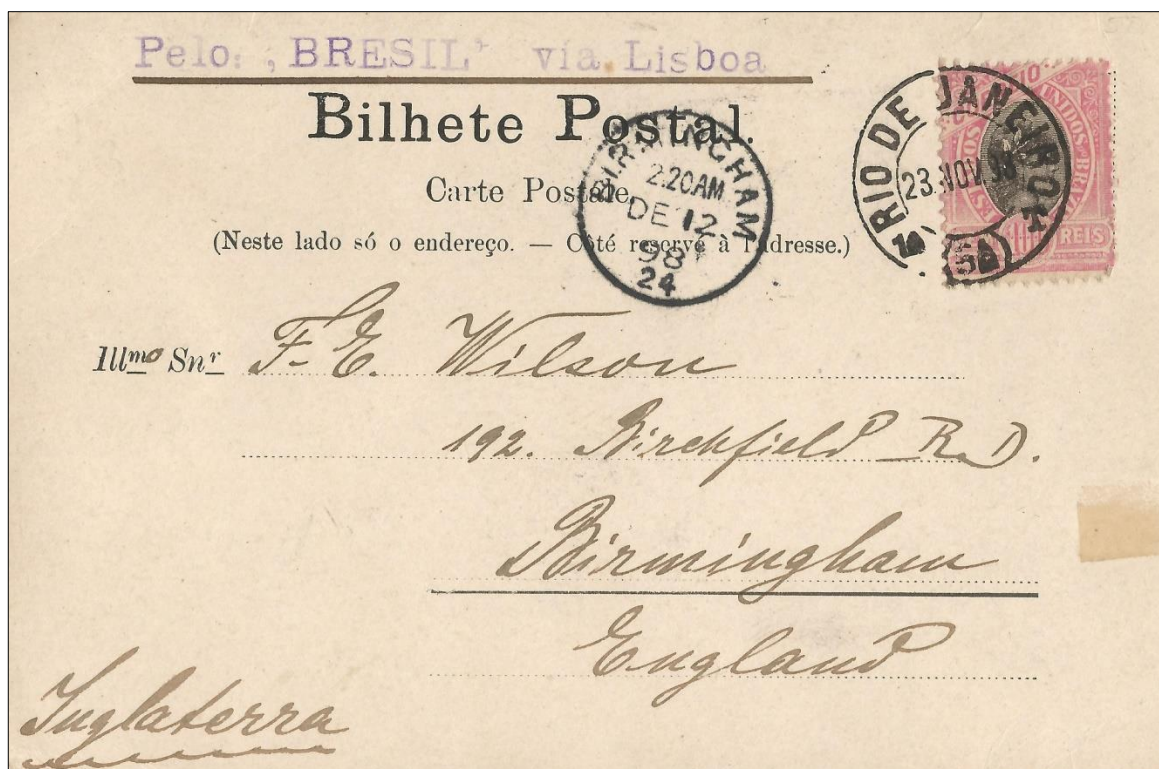 Pelo: „BRESIL" vía Lisboa
Bilhete Postal.
Carte Postale.
(Neste lado só o endereço. — Côté reservé à l'adresse.)
BIRMINGHAM
2.20AM
DE 12
98
24
RIO DE JANEIRO
23.NOV.98
5A
UNIDOS BRAZIL
REIS
Illmo Snr F. E. Wilson
192. Birchfield RD.
Birmingham
England
Inglaterra